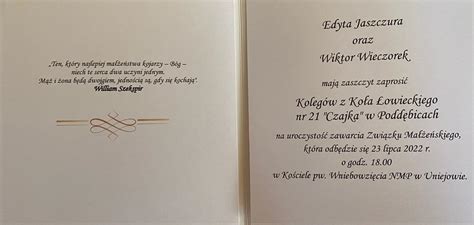 „Ten, który najlepiej małżeństwa kojarzy – Bóg –
niech te serca dwa uczyni jednym.
Mąż i żona będą dwojgiem, jednością są, gdy się kochają".
William Szekspir
Edyta Jaszczura
oraz
Wiktor Wieczorek
mają zaszczyt zaprosić
Kolegów z Koła Łowieckiego
nr 21 "Czajka" w Poddębicach
na uroczystość zawarcia Związku Małżeńskiego,
która odbędzie się 23 lipca 2022 r.
o godz. 18.00
w Kościele pw. Wniebowzięcia NMP w Uniejowie.